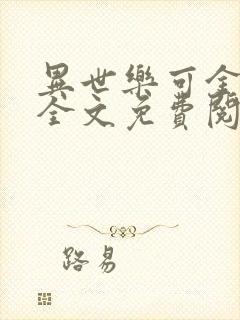 異世樂可全
全文免費閱
路易